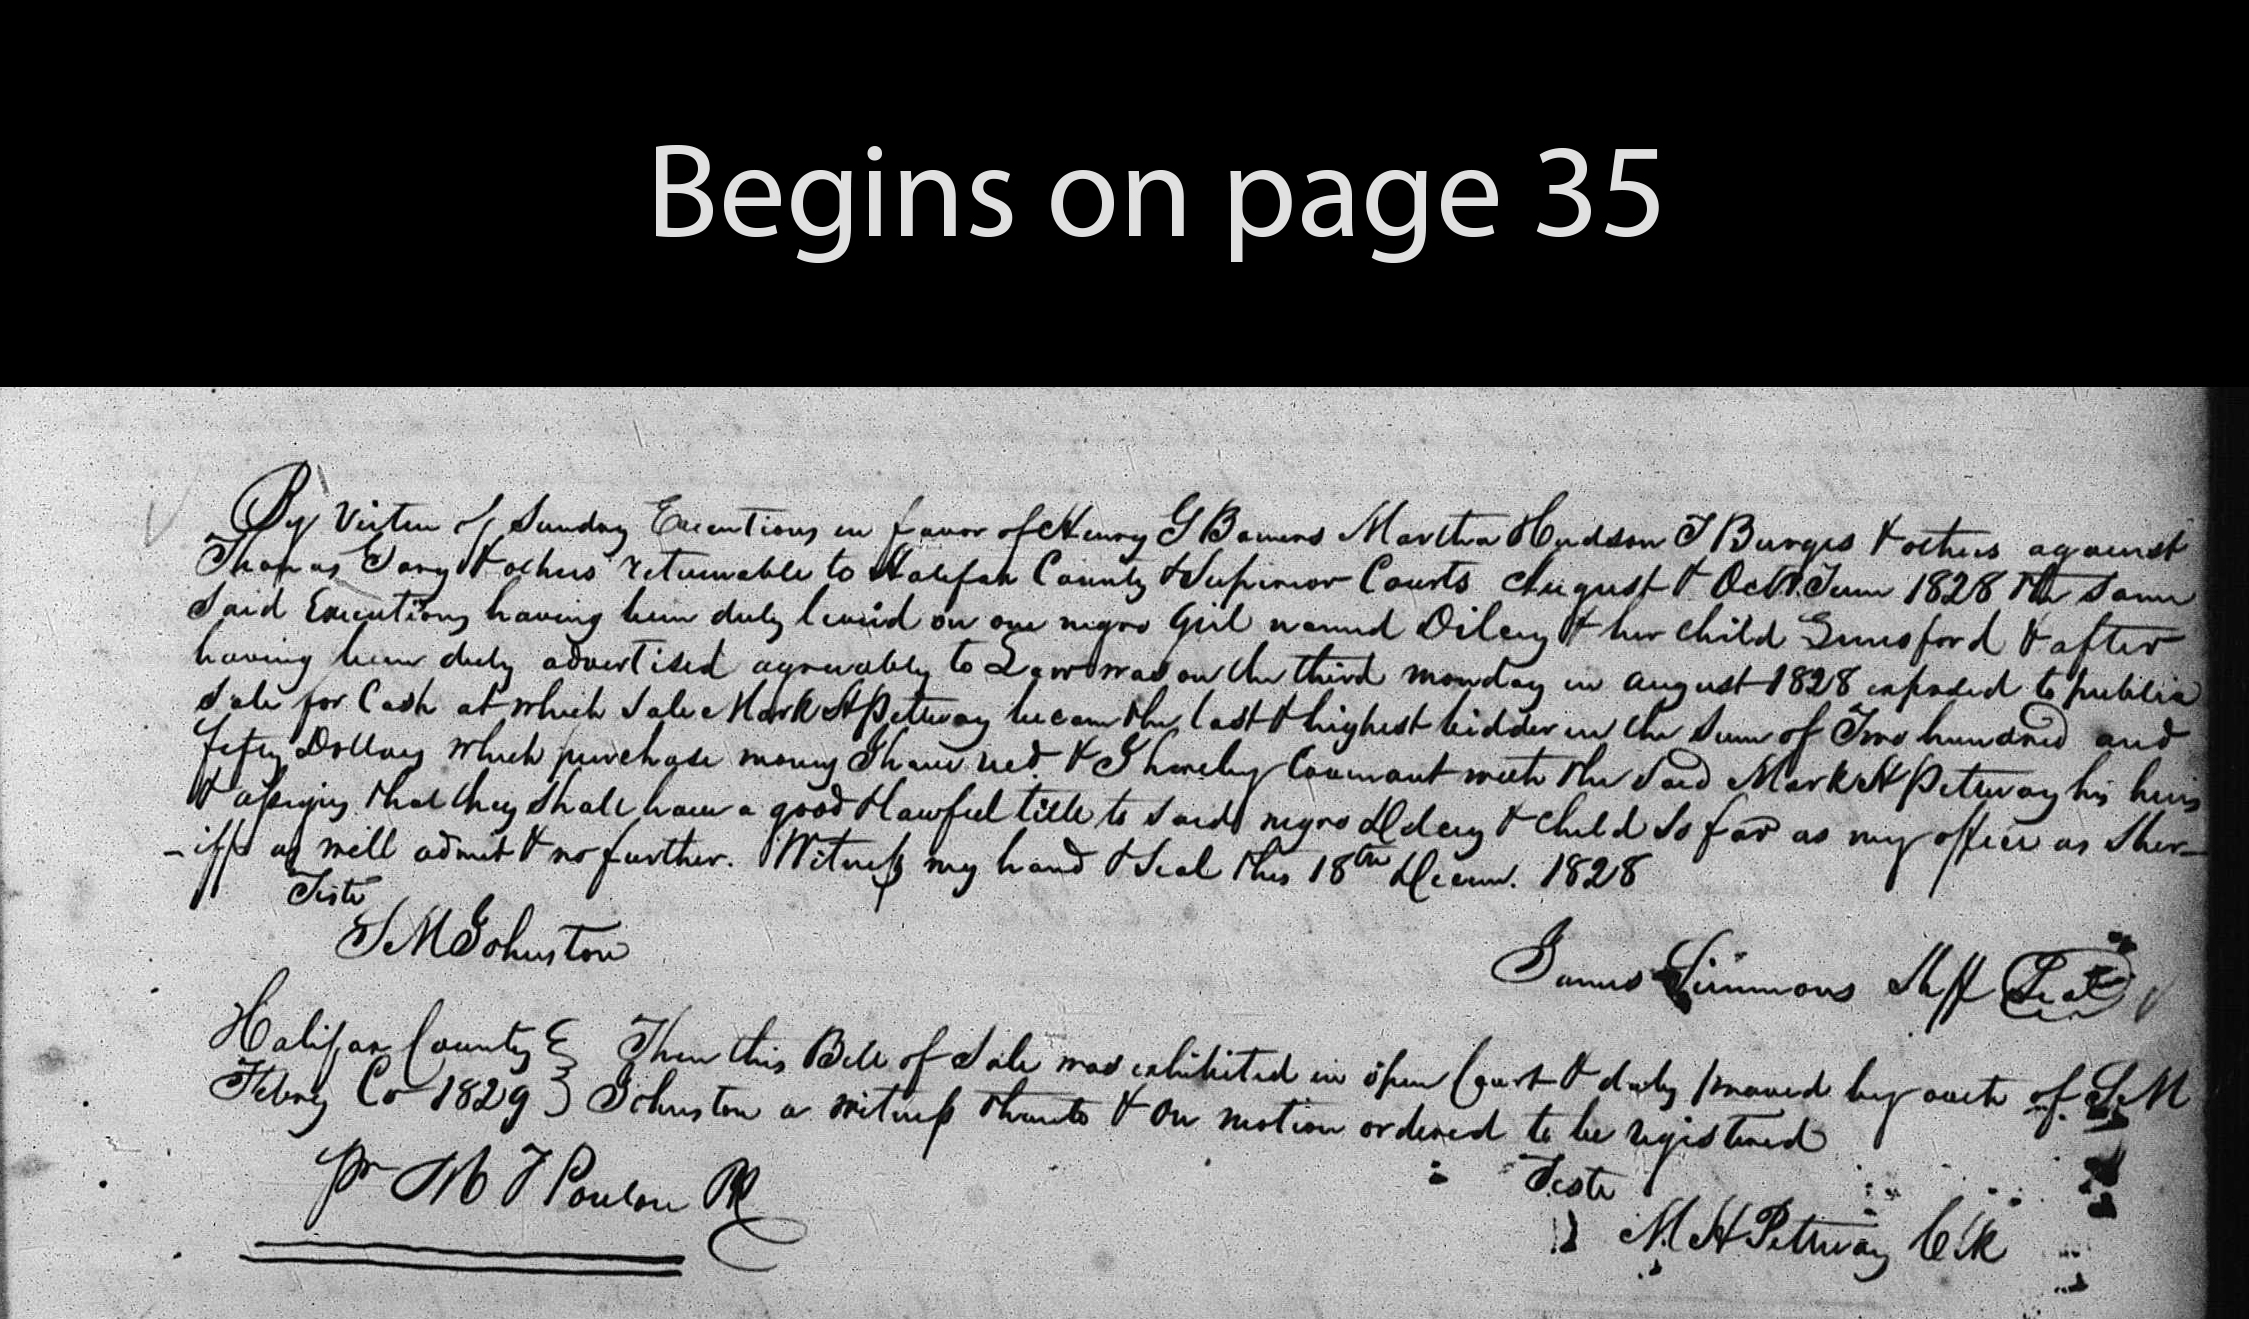 Begins on page 35
By Virtue of Sunday Executions in favor of Henry G Bowers Martha Hudson T Burges & others against
Thomas Gary & others returnable to Halifax County & Superior Courts August & Octr. Term 1828 the same
Said Executions having been duly levied on one negro Girl named Dilcy & her child & after
having been duly advertised agreeably to Law was on the third monday in august 1828 exposed to publia
Sale for Cash at which Sale Mark H Petway became the last & highest bidder in the sum of Two hundred and
fifty Dollars which purchase money I have recd. & I hereby Covenant with the Said Mark H Petway his heirs
& assigns that they shall have a good & lawful title to said negro Dilcy & child so far as my office as Sher-
-iff as will admit & no further. Witness my hand & Seal this 18th Decem. 1828
Teste
S M Johnston
James Simmons Shff Seal
Halifax County } Then this Bill of Sale was exhibited in open Court & duly proved by oath of S M
Febry Co 1829 } Johnston a witness thereto & on motion ordered to be registered
Teste
pr M T Ponton PR
M H Pettway Clk